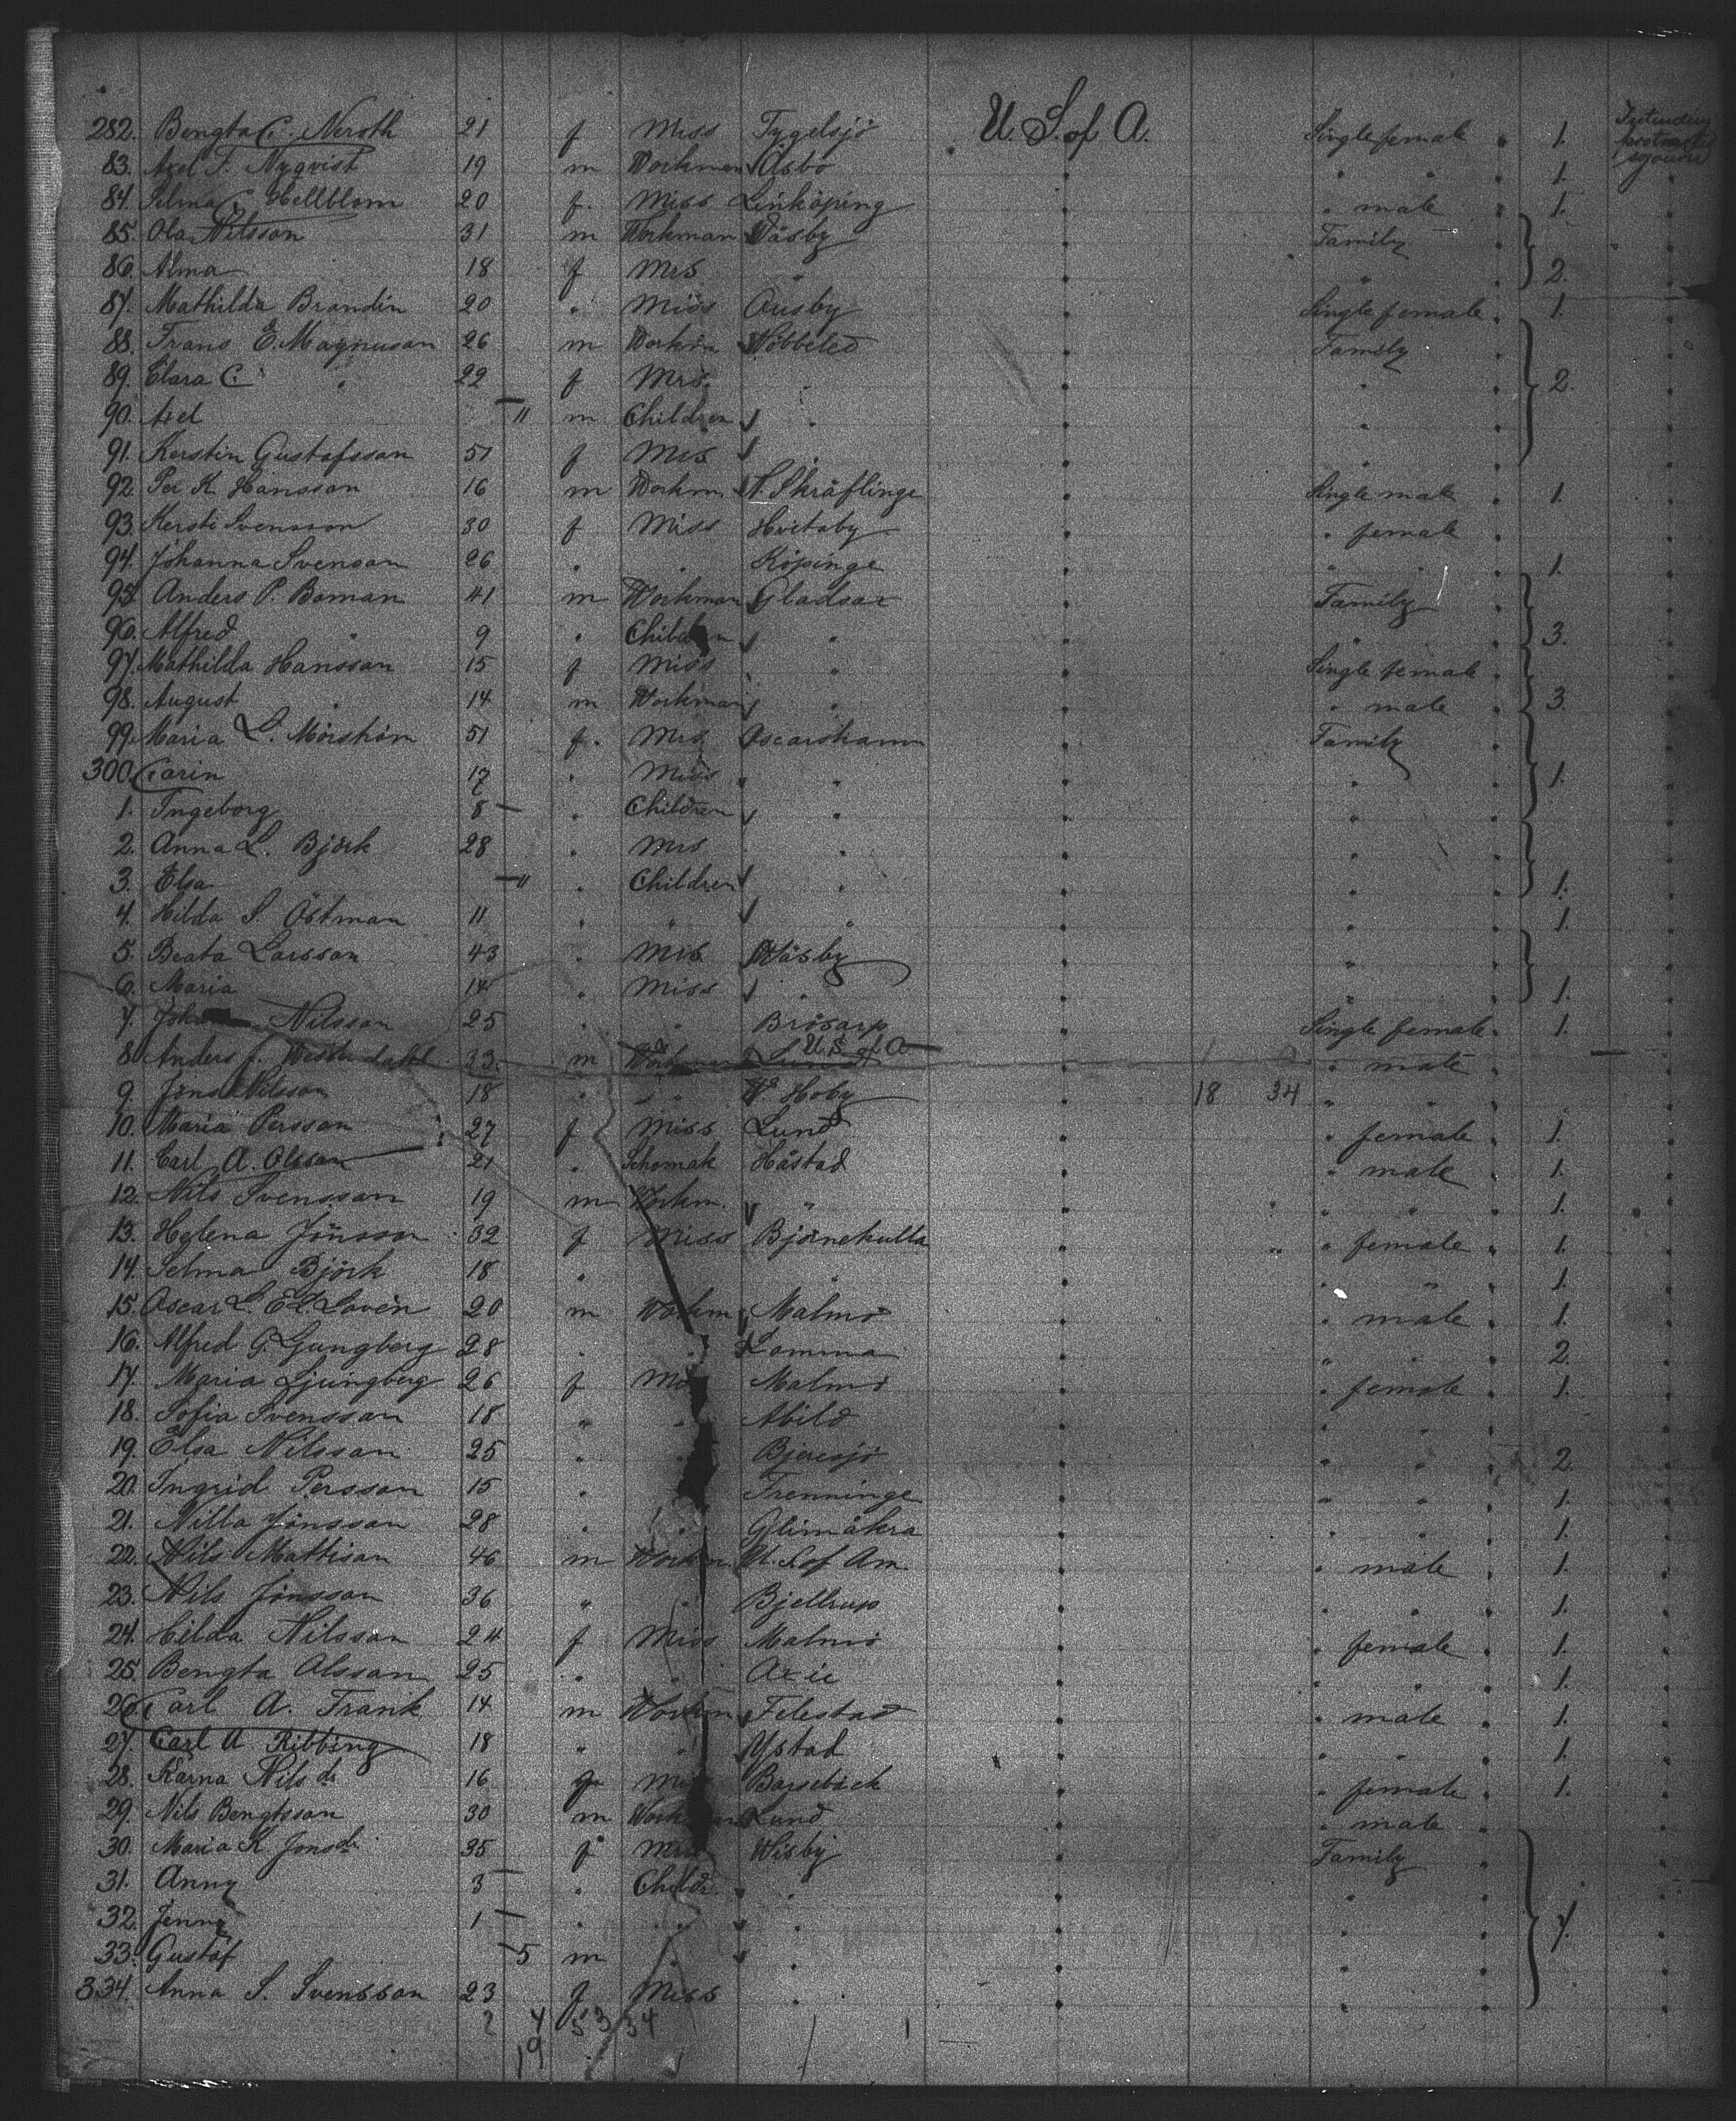 282. Bengta C. Neroth 21 f Miss Tygelsjö U. S. of A. Single female 1. Intending protracted sojourn
83. Axel F. Nyqvist 19 m Workman Åsbo " " 1.
84. Selma C. Hellblom 20 f. Miss Linköping " male 1.
85. Ola Nilsson 31 m Workman Wäsby Family
86. Alma 18 f Mrs " " 2.
87. Mathilda Brandin 20 " Miss Ousby Single female 1.
88. Frans E. Magnuson 26 m Workm Wibbeled Family
89. Clara C. " 22 f Mrs. " " 2.
90. Axel 11 m Children " "
91. Kerstin Gustafsson 51 f Mrs " "
92. Per K. Hansson 16 m Workm W. Skräflinge Single male 1.
93. Kersti Svensson 30 f Miss Hvitaby " female
94. Johanna Svenson 26 " " Köpinge " " 1.
95. Anders P. Boman 41 m Workman Gladsax Family
96. Alfred " 9 " Children " " 3.
97. Mathilda Hansson 15 f Miss " Single female
98. August " 14 m Workman " " male 3.
99. Maria L. Mörström 51 f. Mrs Oscarshamn Family
300. Carin 17 " Miss " " 1.
1. Ingeborg 8 " Children " "
2. Anna L. Björk 28 " Mrs " "
3. Elsa 11 " Children " " 1.
4. Hilda S. Östman 11 " " " " 1.
5. Beata Larsson 43 " Mrs Wäsby "
6. Maria 14 " Miss " " 1.
7. Nilsson 25 " " Brösarp Single female 1.
8. Anders f. Westerdahl 33. m Workman Lund U S of A " male
9. Jöns Nilsson 18 " " W. Hoby 18 34 " "
10. Maria Persson 27 f Miss Lund " female 1.
11. Carl A. Olsson 21 " Schomak Håstad " male 1.
12. Nils Svensson 19 m Workm. " " " 1.
13. Helena Jönsson 32 f Miss Björnekulla " female 1.
14. Selma Björk 18 " " " " 1.
15. Oscar L. E. Lovén 20 m Workm Malmö " male 1.
16. Alfred G. Ljungberg 28 " " Lomma " " 2.
17. Maria Ljungberg 26 f Malmö " female 1.
18. Sofia Svensson 18 " " Abild " "
19. Elsa Nilsson 25 " Bjeresjö " " 2.
20. Ingrid Persson 15 " Trenninge " " 1.
21. Nilla Jönsson 28 " " Glimåkra " " 1.
22. Nils Mattisan 46 m Workm U. S of Am. " male 1.
23. Nils Jönsson 36 " " Bjellrup " " 1.
24. Hilda Nilsson 24 f Miss Malmö " female 1.
25. Bengta Olsson 25 " " Oxie " " 1.
26. Carl A. Frank 14 m Workm Felestad " male 1.
27. Carl A Ribbing 18 " " Ystad " " 1.
28. Karna Nils dr 16 f Miss Barsebäck " female 1.
29. Nils Bengtsson 30 m Workman Lund " male
30. Maria K Jonsdr 35 f Mrs Wisby Family
31. Anny 3 " Childr. " "
32. Jenny 1 " " " "
33. Gustaf 5 m " " "
334. Anna S. Svensson 23 f Miss " "
4 53 34
19